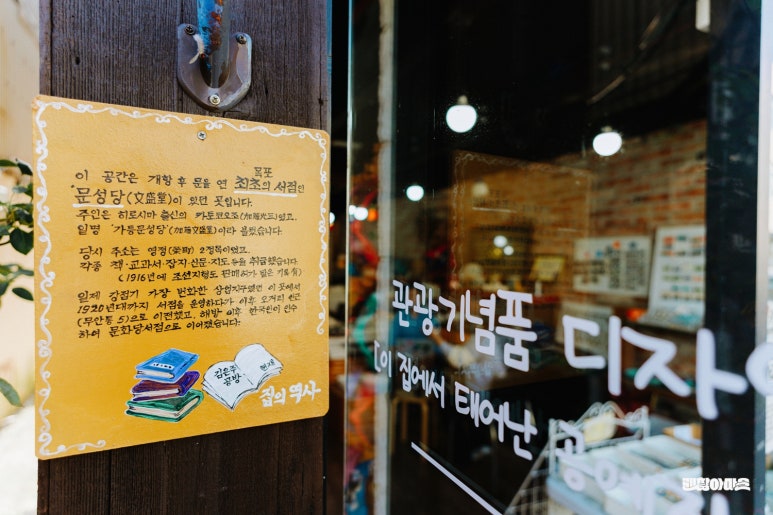 이 공간은 개항 후 문을 연 목포 최초의 서점인
'문성당(文盛堂)이 있던 곳입니다.
주인은 히로시마 출신의 카토코오조 였고,
일명 '가등문성당' 이라 불렸습니다.
당시 주소는 영정(栄町) 2정목이었고,
각종 책·교과서·잡지·신문·지도 등을 취급했습니다.
(1916년에 조선지형도 판매허가 받은 기록 有)
일제 강점기 가장 번화한 상업지구였던 이 곳에서
1920년대까지 서점을 운영하다가 이후 오거리 인근
(무안동 5)으로 이전했고, 해방 이후 한국인이 인수
하여 문화당서점으로 이어졌습니다.
김은주
공방
집의 역사
관광기념품 디자
[이 집에서 태어난 공예